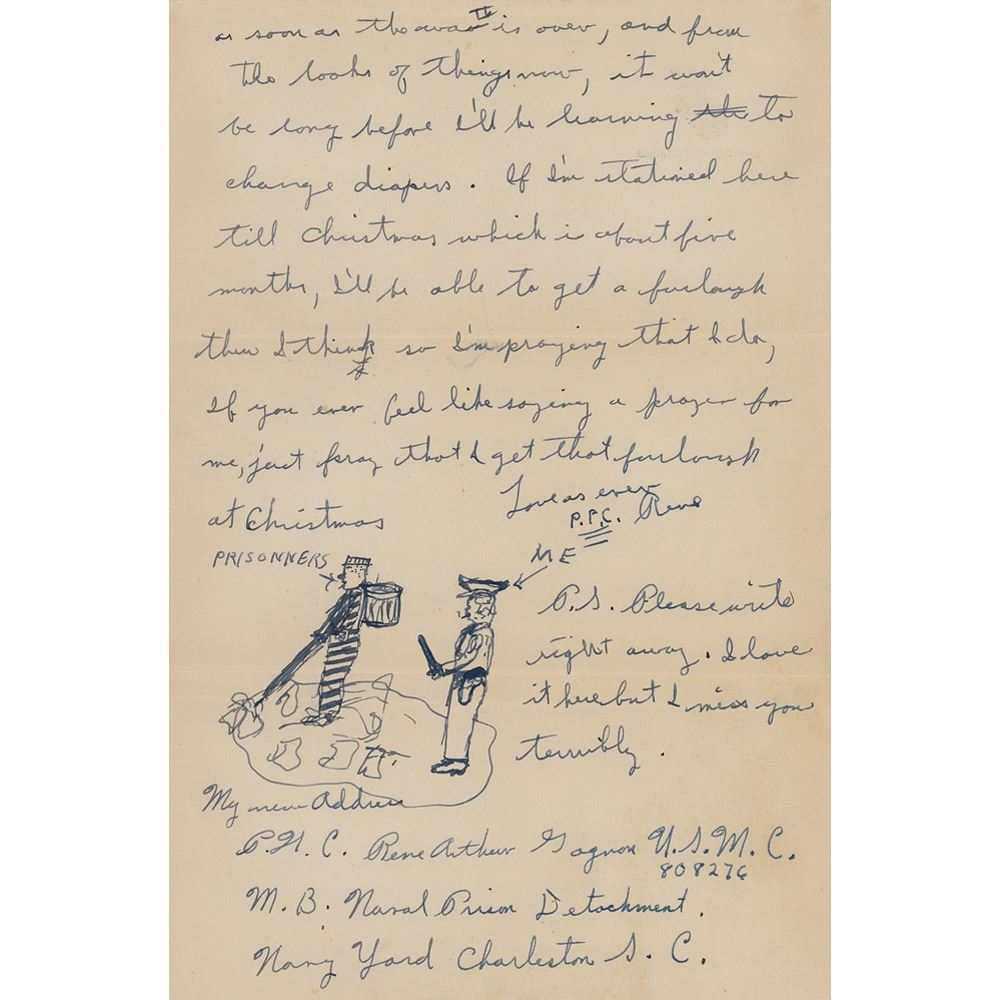 as soon as the war is over, and from
the looks of things now, it won't
be long before I'll be learning to
change diapers. If I'm stationed here
till Christmas which is about five
months, I'll be able to get a furlough
then I think so I'm praying that I do,
If you ever feel like saying a prayer for
me, just pray that I get that furlough
at Christmas
Love as ever
P.F.C. Rene
PRISONNERS
ME
P.S. Please write
right away. I love
it here but I miss you
terribly.
My new Address
P.F.C. Rene Arthur Gagnon U.S.M.C.
808276
M.B. Naval Prison Detachment.
Navy Yard Charleston S.C.